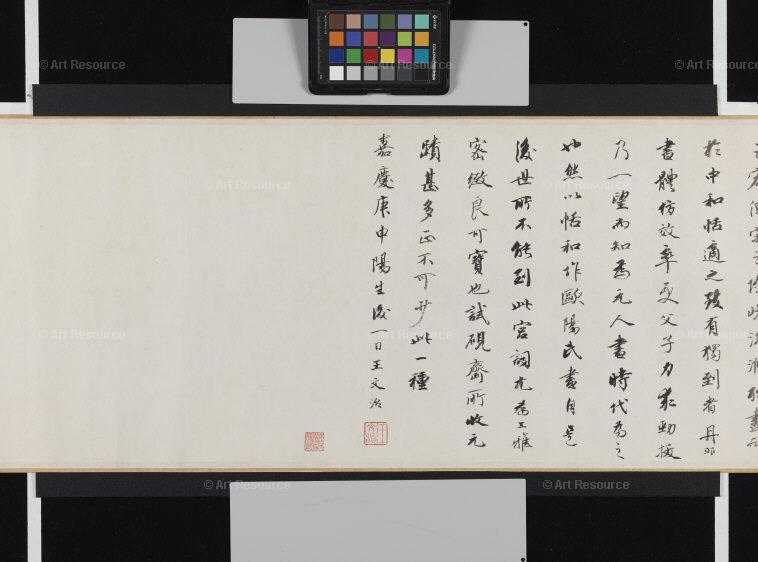 於中和恬適之致有獨到者丹邱
書體仿效率更父子力求勁拔
乃一望而知為元人書時代為之
也然以恬和作歐陽氏書自是
後世所不能到此宮詞尤為工雅
密緻良可寶也試硯齋所收元
蹟甚多正不可少此一種
嘉慶庚申陽生後一日王文治
王文治
© Art Resource
© Art Resource
© Art Resource
© Art Resource
© Art Resource
© Art Resource
© Art Resource
© Art Resource
© Art Resource
© Art Resource
© Art Resource
© Art Resource
© Art Resource